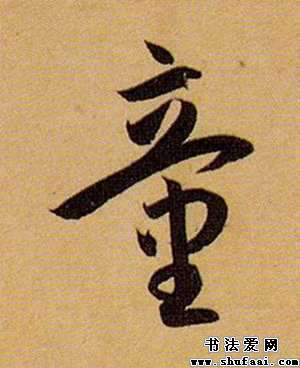 童
书法爱网
www.shufaai.com